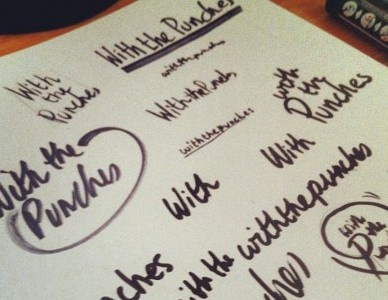 With the Punches
with the punches
With
the
Punches
With the Punches
with
D the
Punches
with the punches
With the
Punches
With
With
with the punches
with the
with
the
nches
nches